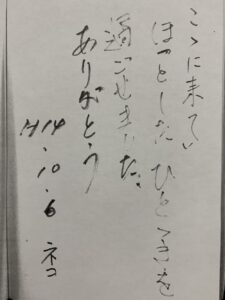 こゝに来てい
ほっとしたひとゝきを
過ごせました、
ありがとう
H14.10.6 ネコ